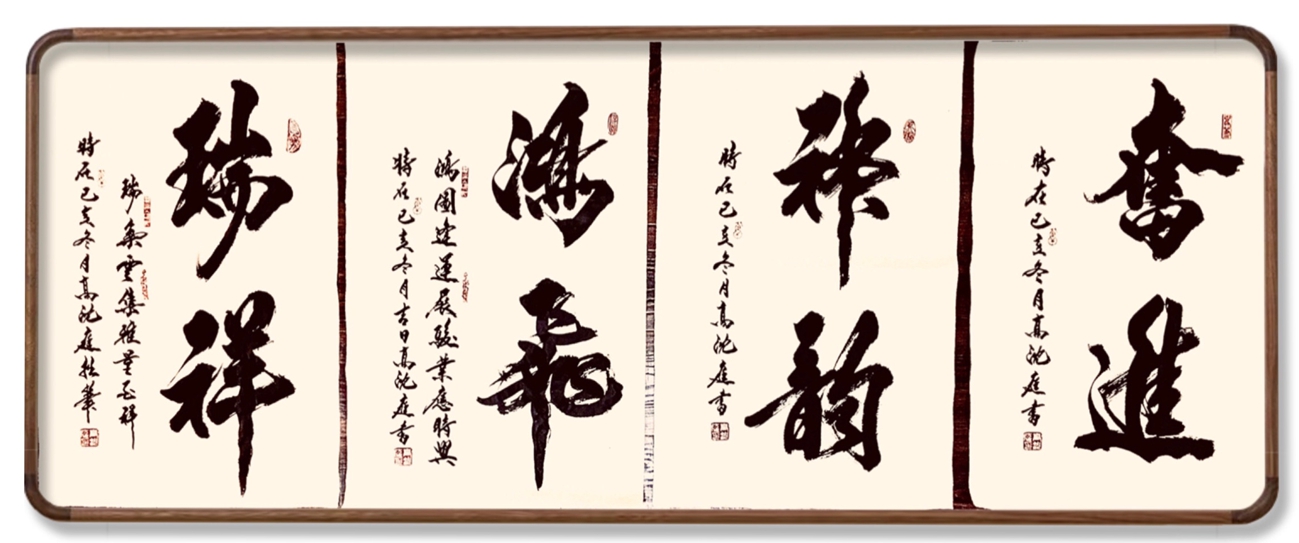 奮進
時在己亥冬月高沈庭書
禅韵
時在己亥冬月高沈庭書
鴻飛
鴻圖運展駿業應時興
時在己亥冬月吉日高沈庭書
瑞祥
瑞氣雲集雅祥
時在己亥冬月高沈庭執筆